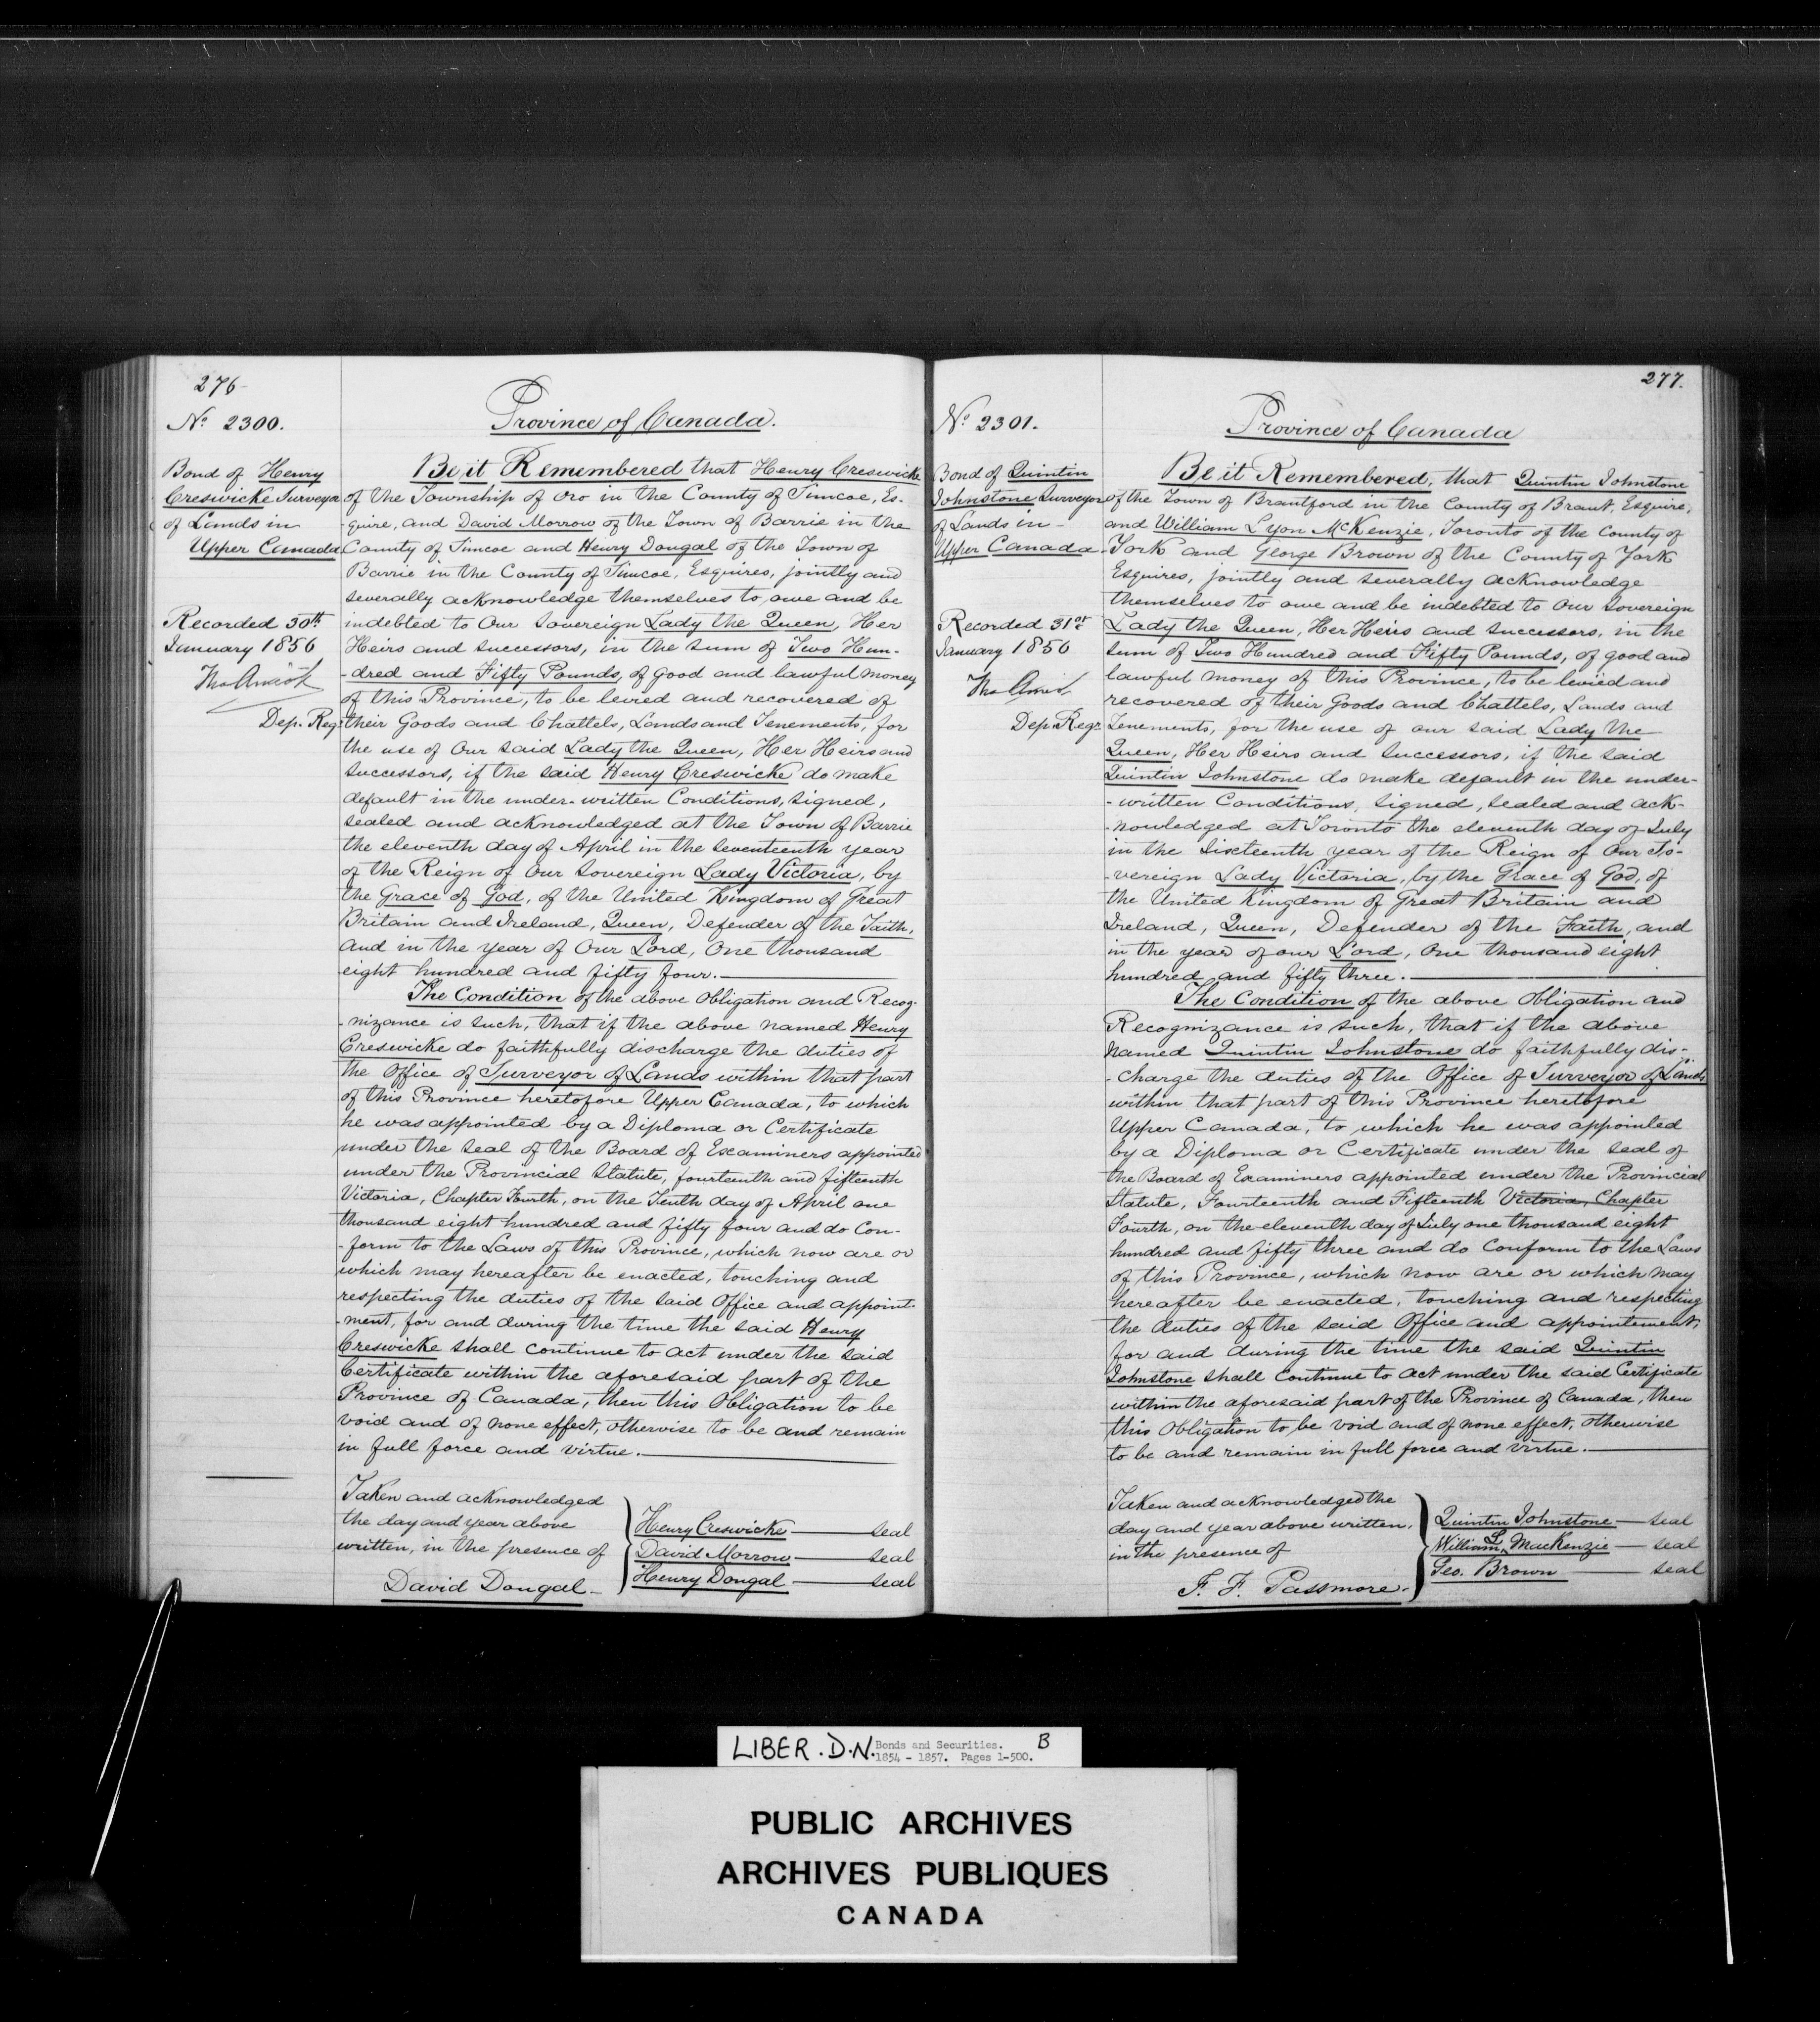 276
No. 2300.
Bond of Henry
Creswicke Surveyor
of Lands in
Upper Canada
Recorded 30th
January 1856
Dep. Reg.
Province of Canada.
Be it Remembered that Henry Creswicke
of the Township of Oro in the County of Simcoe, Es-
-quire, and David Morrow of the Town of Barrie in the
County of Simcoe and Henry Dougal of the Town of
Barrie in the County of Simcoe, Esquires, jointly and
severally acknowledge themselves to owe and be
indebted to Our Sovereign Lady the Queen, Her
Heirs and successors, in the sum of Two Hun-
-dred and Fifty Pounds, of good and lawful money
of this Province, to be levied and recovered of
their Goods and Chattels, Lands and Tenements, for
the use of Our said Lady the Queen, Her Heirs and
Successors, if the said Henry Creswicke do make
default in the under-written Conditions, signed,
sealed and acknowledged at the Town of Barrie
the eleventh day of April in the seventeenth year
of the Reign of Our Sovereign Lady Victoria, by
the Grace of God, of the United Kingdom of Great
Britain and Ireland, Queen, Defender of the Faith,
and in the year of Our Lord, One thousand
eight hundred and fifty four.
The Condition of the above Obligation and Recog-
-nizance is such, that if the above named Henry
Creswicke do faithfully discharge the duties of
the Office of Surveyor of Lands within that part
of this Province heretofore Upper Canada, to which
he was appointed by a Diploma or Certificate
under the Seal of the Board of Examiners appointed
under the Provincial Statute, fourteenth and fifteenth
Victoria, Chapter Fourth, on the Tenth day of April one
thousand eight hundred and fifty four and do Con-
-form to the Laws of this Province, which now are or
which may hereafter be enacted, touching and
respecting the duties of the said Office and appoint-
-ment, for and during the time the said Henry
Creswicke shall continue to act under the said
Certificate within the aforesaid part of the
Province of Canada, then this Obligation to be
void and of none effect, otherwise to be and remain
in full force and virtue.
Taken and acknowledged
the day and year above
written, in the presence of
David Dougal
Henry Creswicke seal
David Morrow seal
Henry Dougal seal
277.
No. 2301.
Bond of Quintin
Johnstone Surveyor
of Lands in
Upper Canada
Recorded 31st
January 1856
Dep. Regr.
Province of Canada
Be it Remembered, that Quintin Johnstone
of the Town of Brantford in the County of Brant, Esquire,
and William Lyon McKenzie, Toronto of the County of
York and George Brown of the County of York
Esquires, jointly and severally acknowledge
themselves to owe and be indebted to Our Sovereign
Lady the Queen, Her Heirs and Successors, in the
sum of Two Hundred and Fifty Pounds, of good and
lawful money of this Province, to be levied and
recovered of their Goods and Chattels, Lands and
Tenements, for the use of our said Lady the
Queen, Her Heirs and Successors, if the said
Quintin Johnstone do make default in the under-
-written Conditions, signed, sealed and ack-
-nowledged at Toronto the eleventh day of July
in the Sixteenth year of the Reign of Our So-
-vereign Lady Victoria, by the Grace of God, of
the United Kingdom of Great Britain and
Ireland, Queen, Defender of the Faith, and
in the year of our Lord, One thousand eight
hundred and fifty three.
The Condition of the above Obligation and
Recognizance is such, that if the above
named Quintin Johnstone do faithfully dis-
-charge the duties of the Office of Surveyor of Lands
within that part of this Province heretofore
Upper Canada, to which he was appointed
by a Diploma or Certificate under the seal of
the Board of Examiners appointed under the Provincial
Statute, Fourteenth and Fifteenth Victoria, Chapter
Fourth, on the eleventh day of July one thousand eight
hundred and fifty three and do Conform to the Laws
of this Province, which now are or which may
hereafter be enacted, touching and respecting
the duties of the said Office and appointement,
for and during the time the said Quintin
Johnstone shall Continue to act under the said Certificate
within the aforesaid part of the Province of Canada, then
this Obligation to be void and of none effect, otherwise
to be and remain in full force and virtue.
Taken and acknowledged the
day and year above written,
in the presence of
F. F. Passmore.
Quintin Johnstone seal
William L MacKenzie seal
Geo. Brown seal
LIBER . D.N. Bonds and Securities. B
1854 - 1857. Pages 1-500.
PUBLIC ARCHIVES
ARCHIVES PUBLIQUES
CANADA